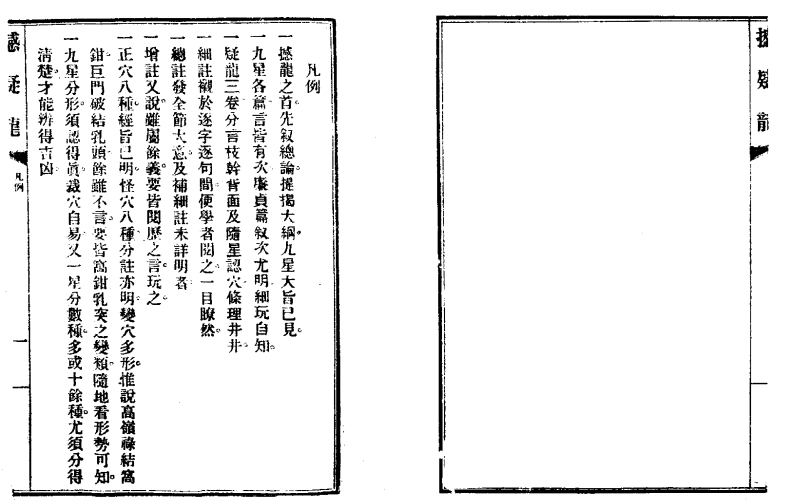 撼疑龍
凡例
一撼龍之首先叙總論提揭大綱。九星大旨已見。
一九星各篇言皆有次。廉貞篇叙次尤明。細玩自知。
一疑龍三卷分言枝幹背面及隨星認穴條理井井。
一細註襯於逐字逐句間。便學者閱之一目瞭然。
一總註發全節大意。及補細註未詳明者
一增註又說雖屬餘義。要皆閱歷之言。玩之。
一正穴八種。經旨已明。怪穴八種分註亦明。變穴多形。惟說高嶺祿結窩
鉗。巨門破結乳頭。餘雖不言。要皆窩鉗乳突之變類。隨地看形勢可知。
一九星分形。須認得眞。裁穴自易。又一星分數種。多或十餘種。尤須分得
清楚。才能辨得吉凶
撼疑龍
凡例
一